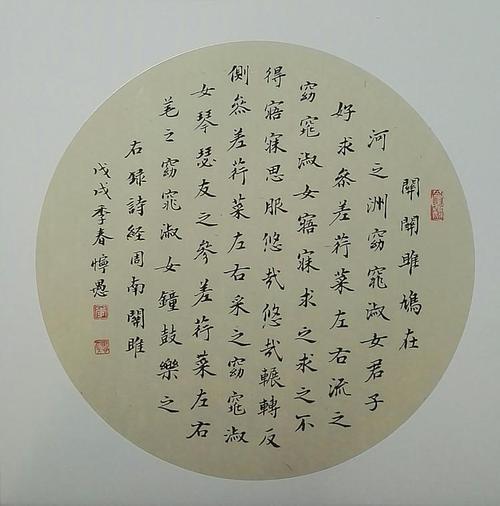 關關雎鳩在
河之洲窈窕淑女君子
好求叅差荇菜左右流之
窈窕淑女寤寐求之求之不
得寤寐思服悠哉悠哉輾轉反
側叅差荇菜左右采之窈窕淑
女琴瑟友之參差荇菜左右
芼之窈窕淑女鐘鼓樂之
右録詩經周南關雎
戊戌季春懧愚